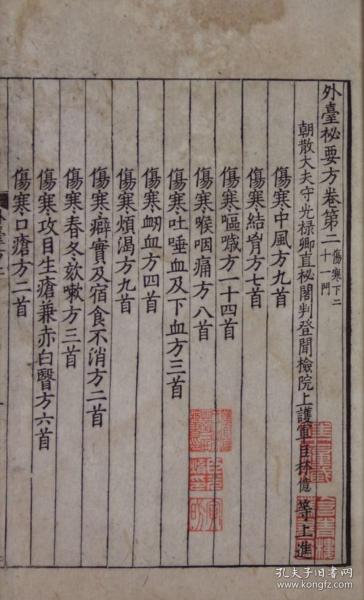 外臺祕要方卷第二 傷寒下二十一門
朝散大夫守光祿卿直祕閣判登聞檢院上護軍臣林億等上進
傷寒中風方九首
傷寒結胷方七首
傷寒嘔噦方一十四首
傷寒喉咽痛方八首
傷寒吐唾血及下血方三首
傷寒衂血方四首
傷寒煩渴方九首
傷寒癖實及宿食不消方二首
傷寒春冬欬嗽方三首
傷寒攻目生瘡兼赤白瞖方六首
傷寒口瘡方二首
孔夫子旧书网